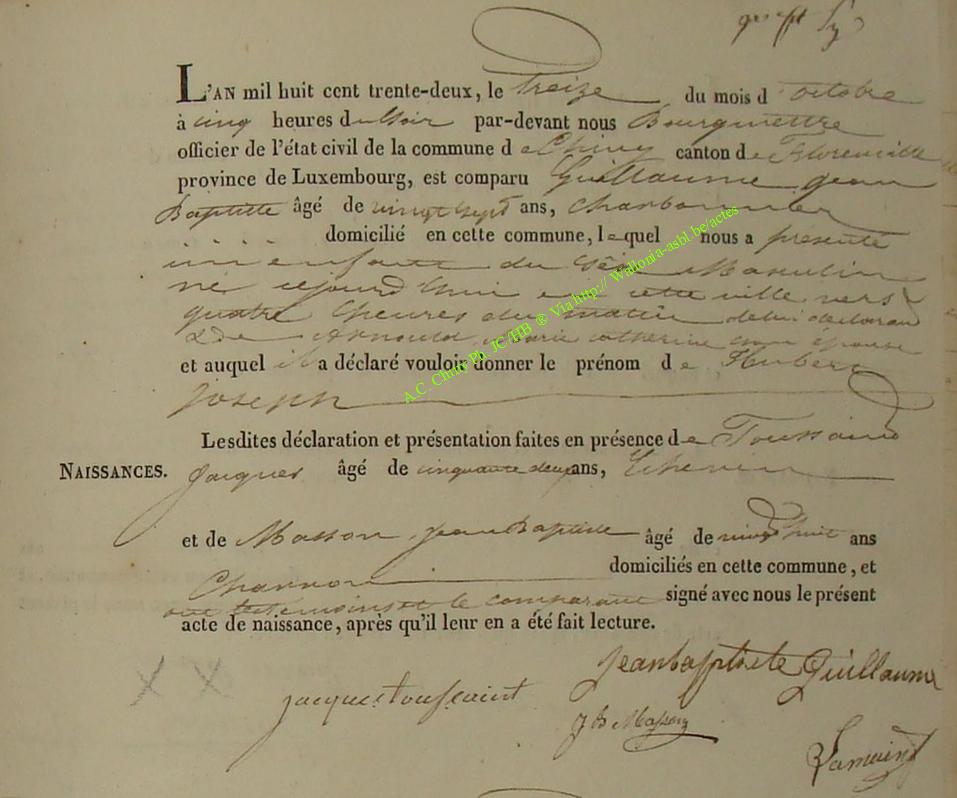 L'AN mil huit cent trente-deux, le treize du mois d'octobre
à cinq heures du soir par-devant nous Bourguettre
officier de l'état civil de la commune de Chiny canton de Florenville
province de Luxembourg, est comparu Guillaume jean
Baptiste âgé de vingt sept ans, charbonnier
domicilié en cette commune, lequel nous a présenté
un enfant du sèxe Masculin
né cejourd'hui en cette ville vers
quatre heures du matin de lui déclarant
& de Arnould marie catherine son épouse
et auquel il a déclaré vouloir donner le prénom de Hubert
joseph
Lesdites déclaration et présentation faites en présence de Toussaint
NAISSANCES. Jacques âgé de cinquante deux ans, Echevin
et de Masson jean Baptiste âgé de vingt huit ans
Charron domiciliés en cette commune, et
ont les temoins et le comparant signé avec nous le présent
acte de naissance, après qu'il leur en a été fait lecture.
jeanbaptiste Guillaume
jacques toussaint
JB Masson
A.C. Chiny Ph. JC/HB ® Via http:// Wallonia-asbl.be/actes